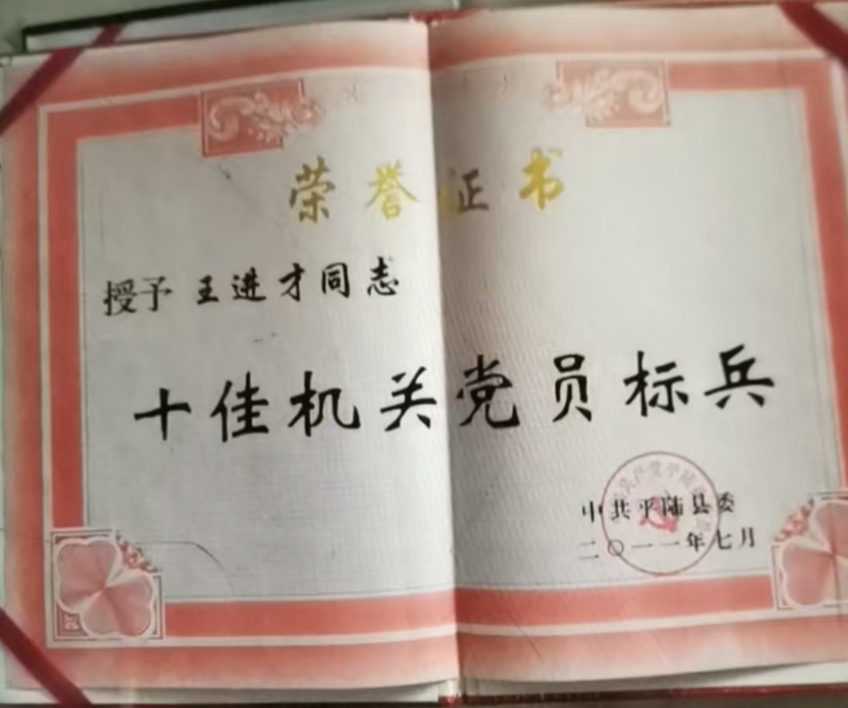 荣誉证书
授予 王进才同志
十佳机关党员标兵
中共平陆县委
二〇一一年七月